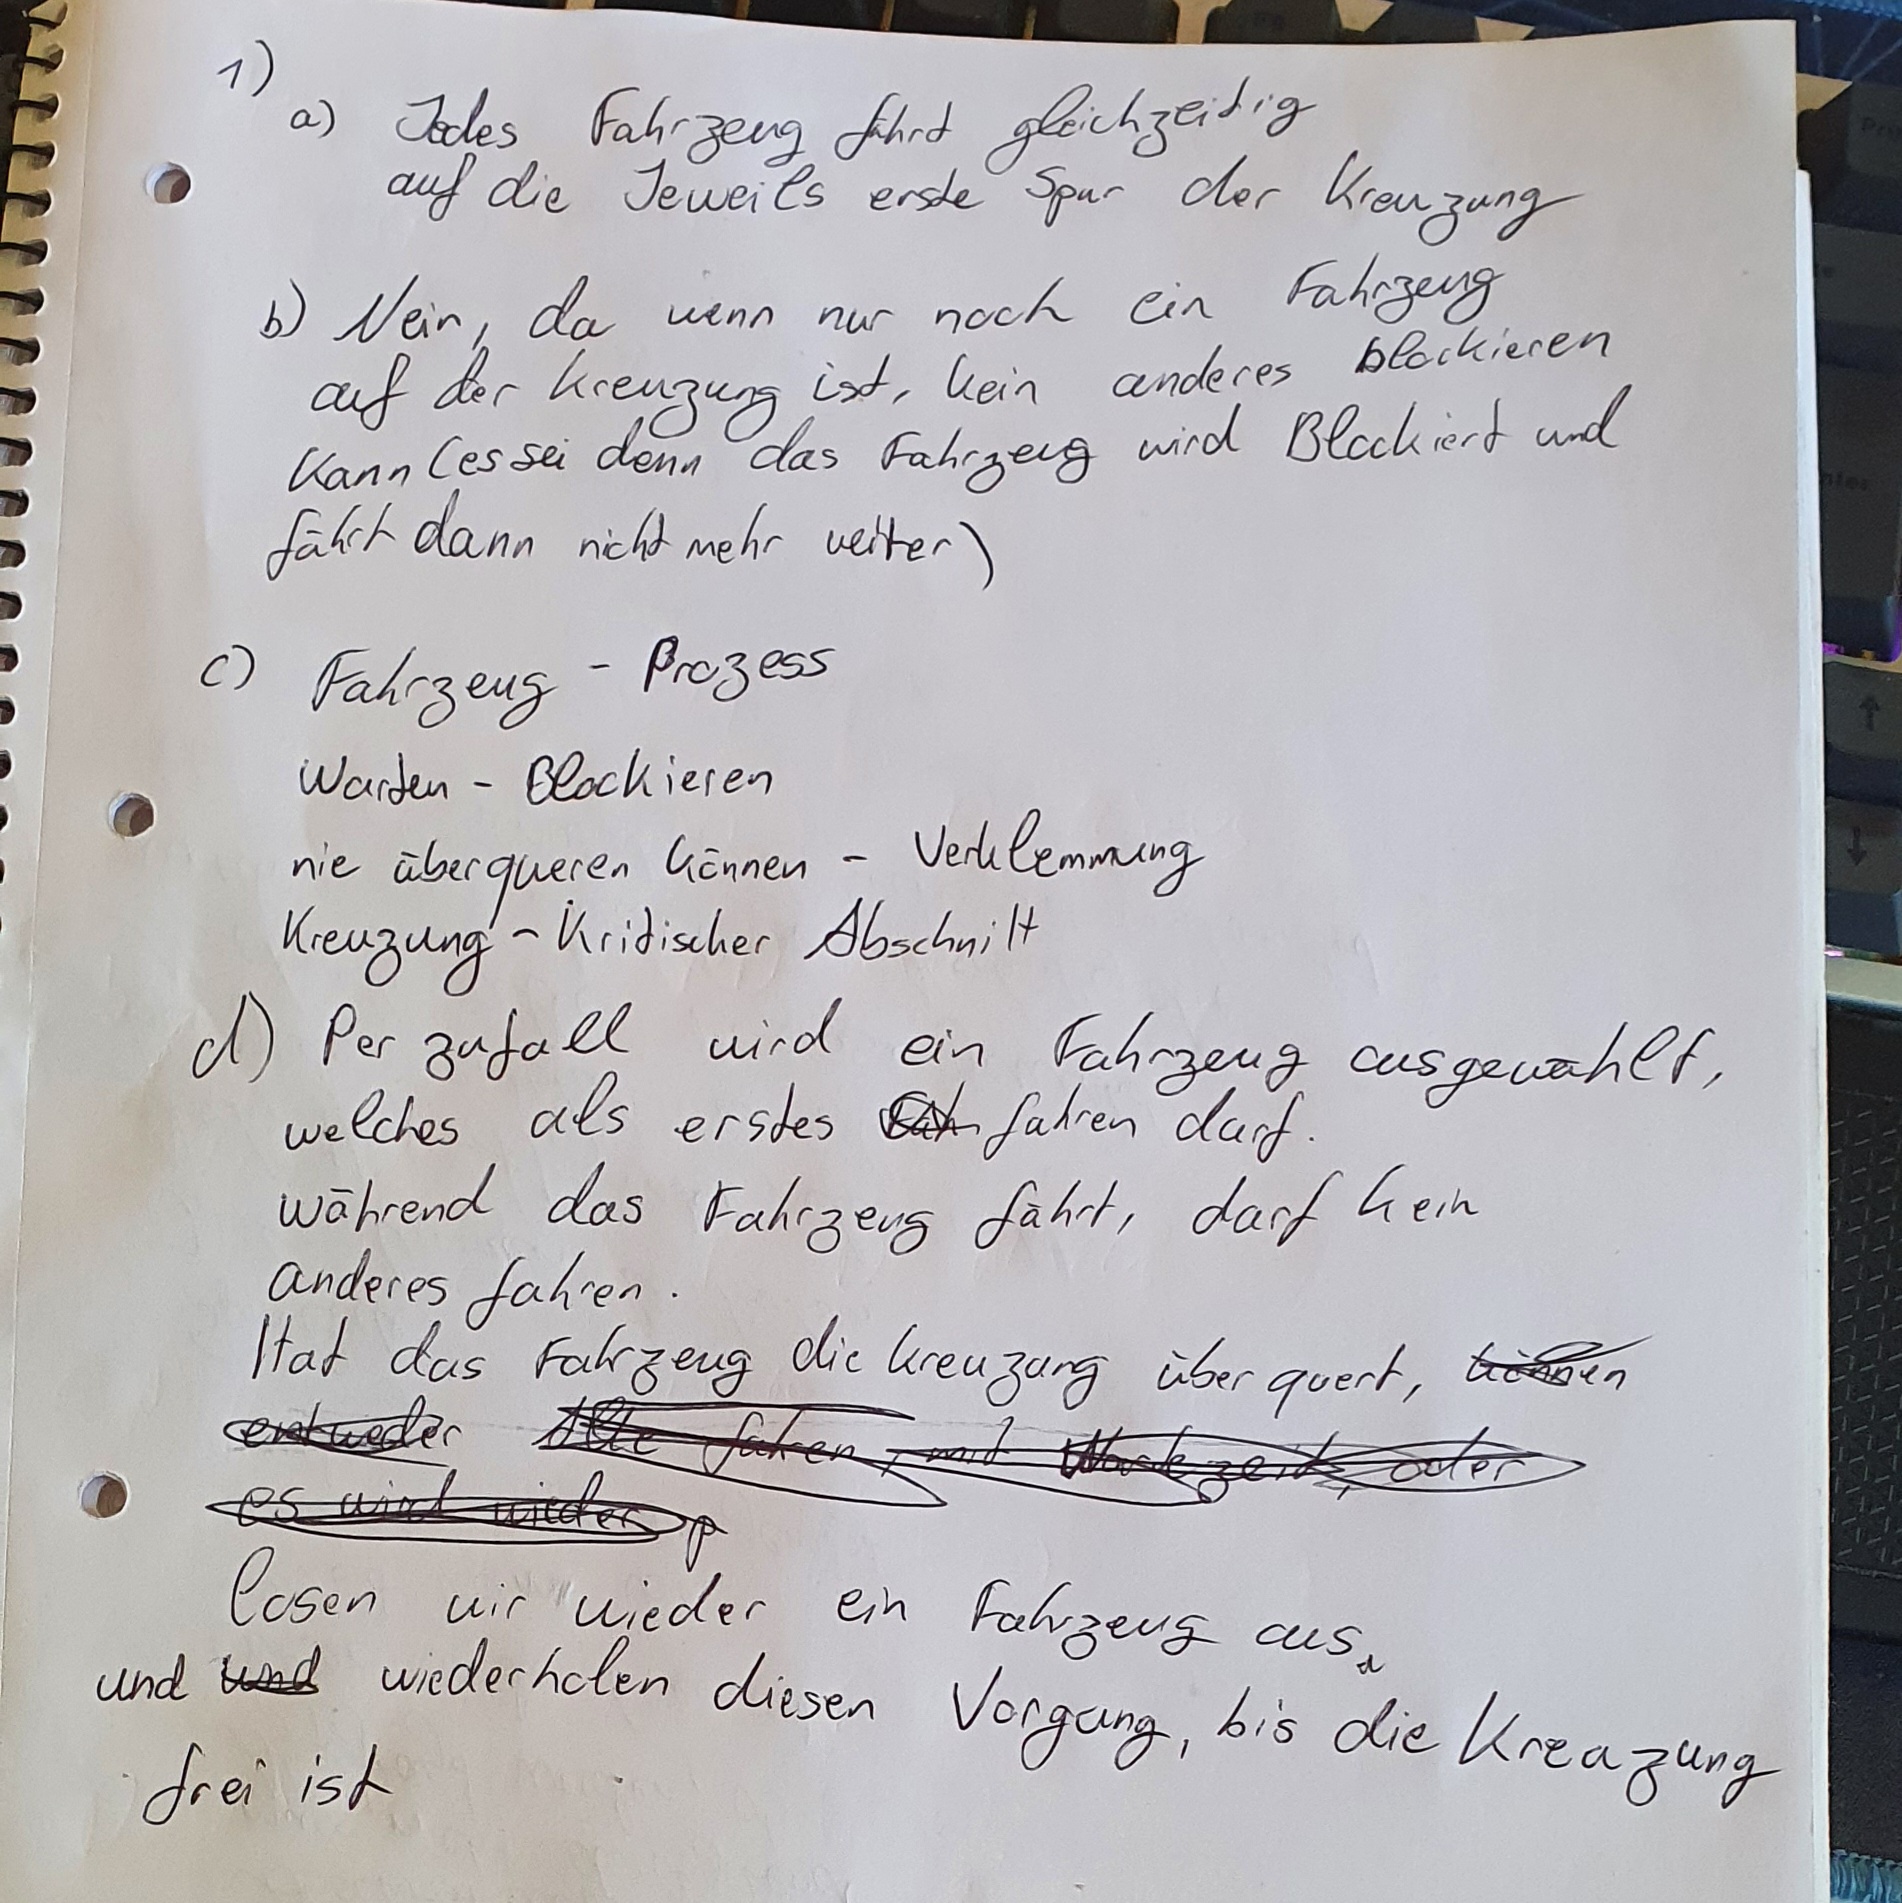 1)
a) Jedes Fahrzeug fährt gleichzeitig
auf die Jeweils erste Spur der Kreuzung
b) Nein, da wenn nur noch ein Fahrzeug
auf der Kreuzung ist, kein anderes blockieren
kann (es sei denn das Fahrzeug wird Blockiert und
fährt dann nicht mehr weiter)
c) Fahrzeug - Prozess
Warten - Blockieren
nie überqueren können - Verklemmung
Kreuzung - Kritischer Abschnitt
d) Per zufall wird ein Fahrzeug ausgewählt,
welches als erstes fahren darf.
während das Fahrzeug fährt, darf kein
anderes fahren.
Hat das Fahrzeug die Kreuzung überquert, können
entweder Alle fahren, mit Wartezeit, oder
es wird wieder p
losen wir wieder ein Fahrzeug aus
und und wiederholen diesen Vorgang, bis die Kreuzung
frei ist